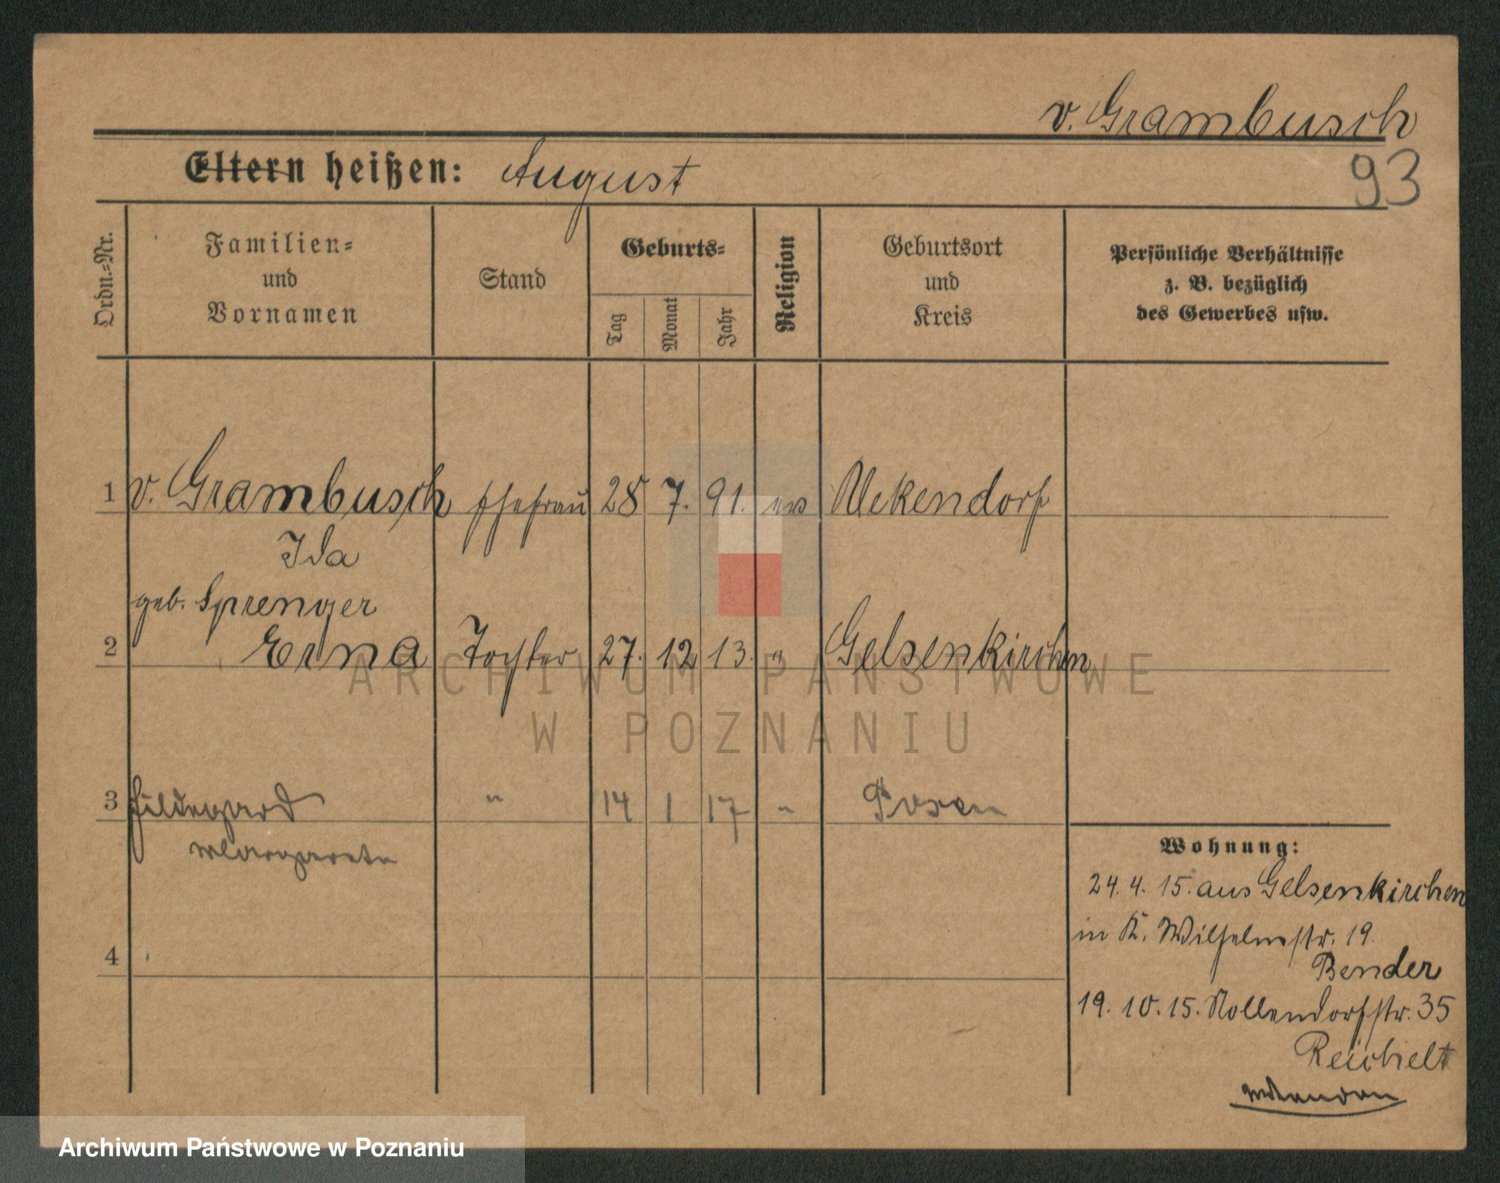 v. Grambusch
93
Eltern heißen: August
Ordn.-Nr.
Familien-
und
Vornamen
Stand
Geburts-
Tag
Monat
Jahr
Religion
Geburtsort
und
Kreis
Persönliche Verhältnisse
z. B. bezüglich
des Gewerbes usw.
1 v. Grambusch Ehefrau 28 7. 91. ev Uekendorf
Ida
geb. Sprenger
2 Erna Tochter 27. 12 13. " Gelsenkirchen
3 Hildegard " 14 1 17 " Posen
Margarete
4
Wohnung:
24. 4. 15. aus Gelsenkirchen
in K. Wilhelmstr. 19.
Bender
19. 10. 15. Nollendorfstr. 35
Reichelt
ARCHIWUM PAŃSTWOWE
W POZNANIU
Archiwum Państwowe w Poznaniu